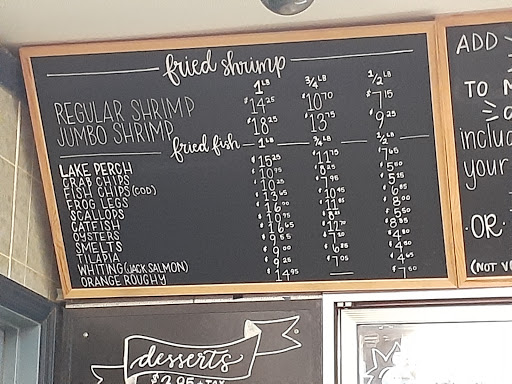 fried shrimp
1 LB 3/4 LB 1/2 LB
REGULAR SHRIMP $14.25 $10.70 $7.15
JUMBO SHRIMP $18.25 $13.75 $9.25
fried fish 1 LB 3/4 LB 1/2 LB
LAKE PERCH $15.25 $11.75 $7.65
CRAB CHIPS
FISH CHIPS (COD) $7.95 $5.15
FROG LEGS $13.65 $10.45 $6.85
SCALLOPS $16.00 $11.85 $8.00
CATFISH $10.95 $5.50
OYSTERS $16.65 $12.70 $8.35
SMELTS $9.55 $7.20 $4.80
TILAPIA $9.00 $6.85
WHITING (JACK SALMON) $7.05 $4.65
ORANGE ROUGHY $14.95 — $7.50
desserts
$2.95 + TAX
ADD
TO
inclu
your
OR
(NOT